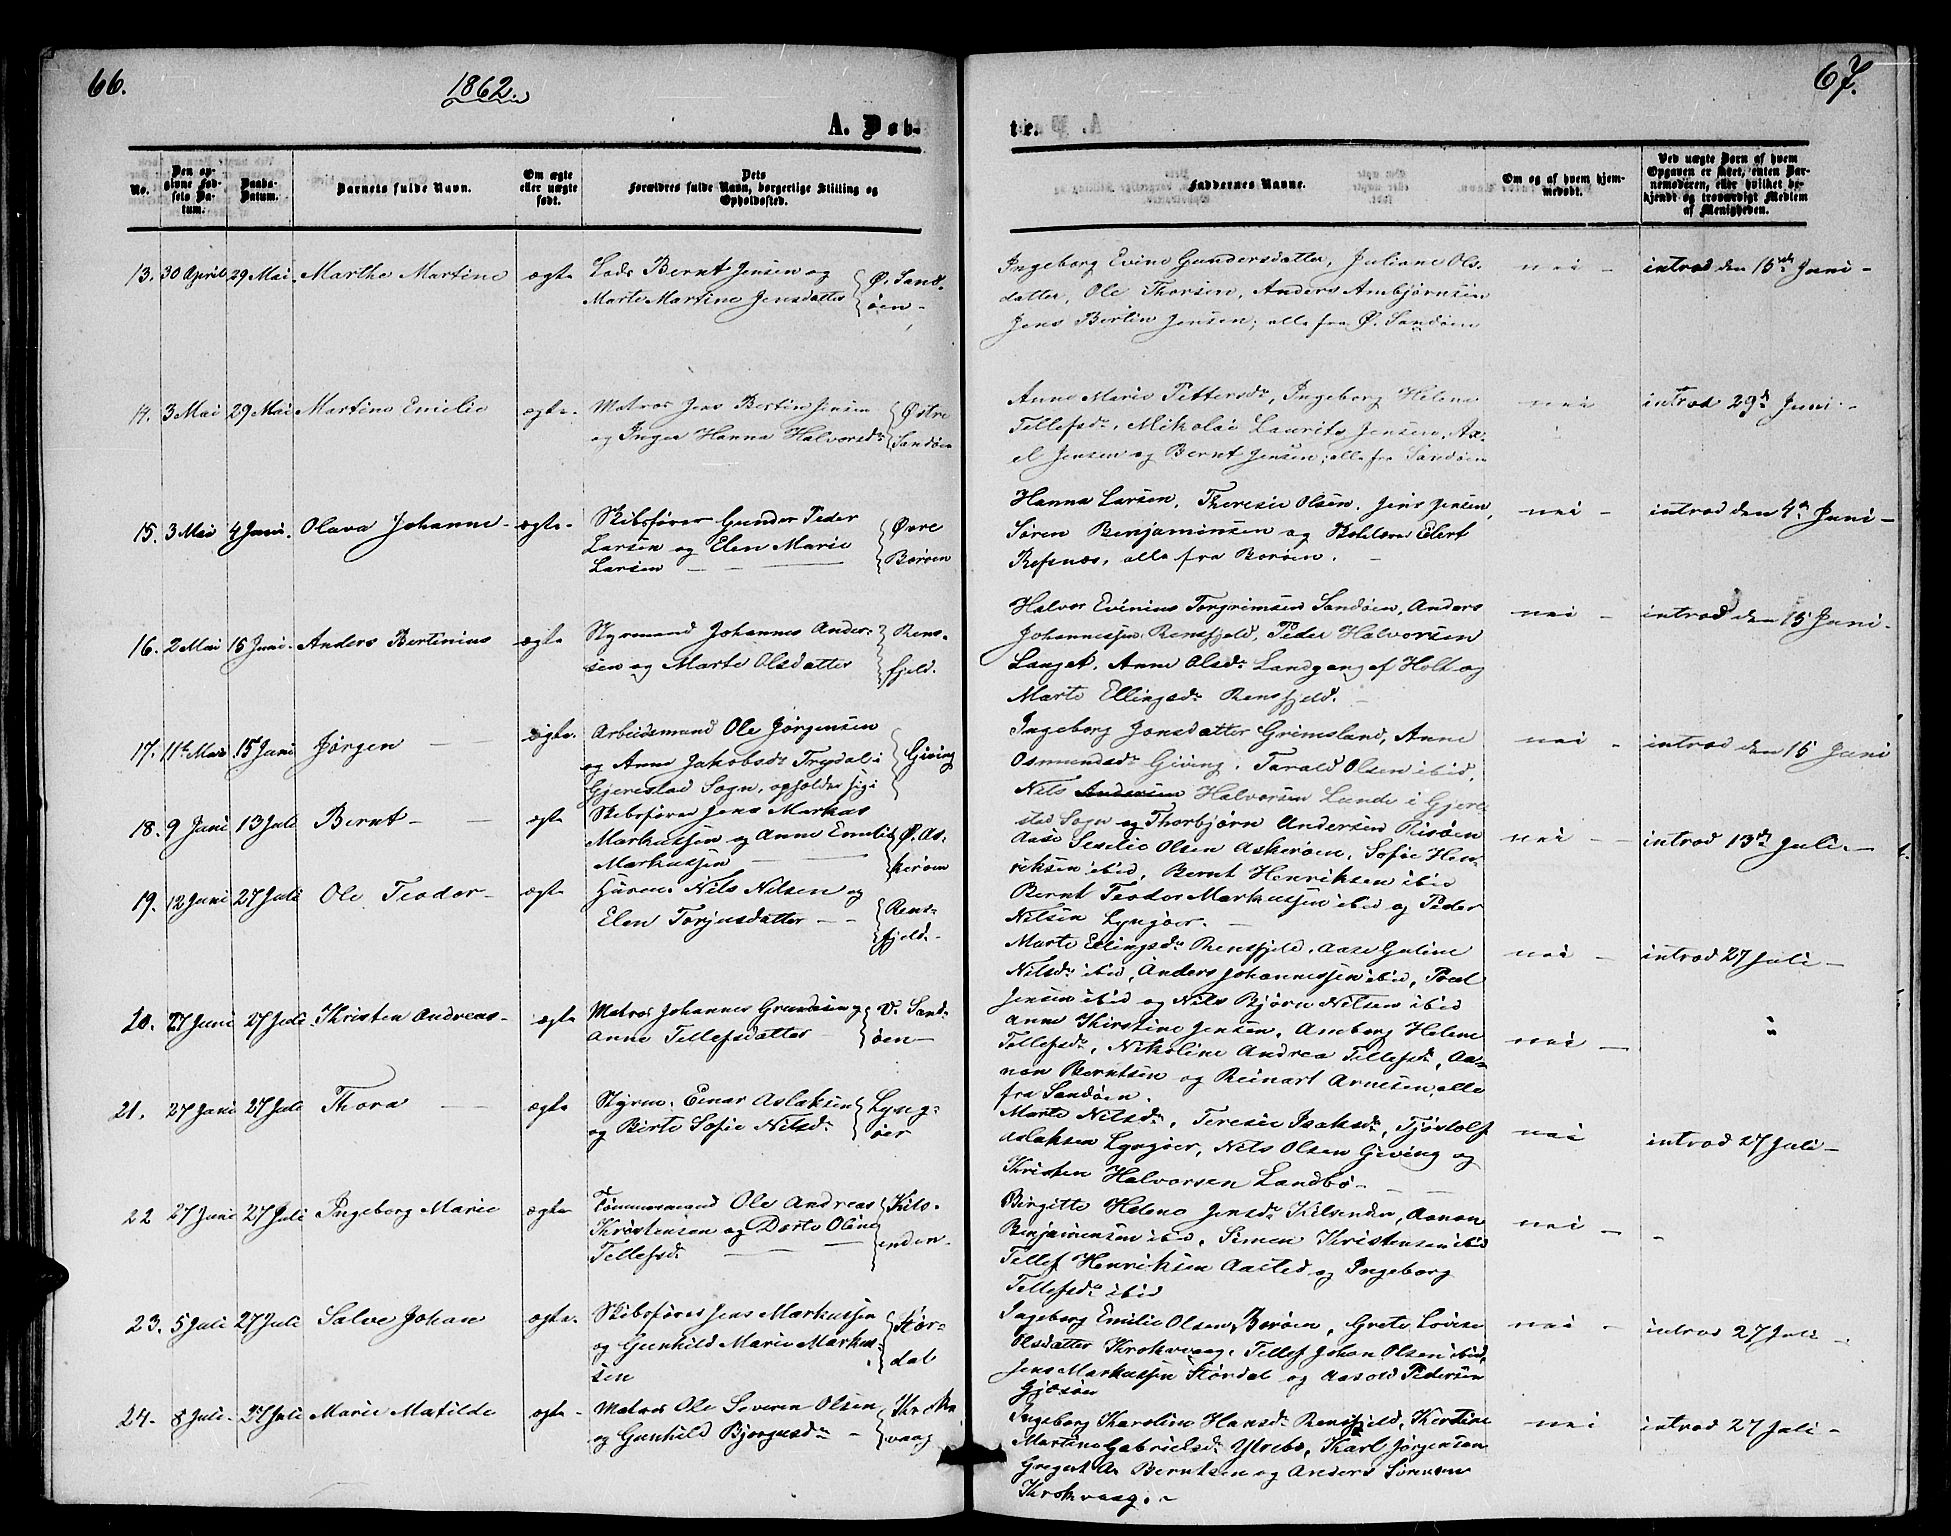 66.
1862.
A. Døb-
No.
Den op-
givne Fød-
sels Da-
tum.
Daabs-
Datum.
Barnets fulde Navn.
Om ægte
eller uægte
født.
Dets
Forældres fulde Navn, borgerlige Stilling og
Opholdssted.
13. 30 April 29 Mai. Marthe Martine ægte Lods Bernt Jensen og
Marte Martine Jensdatter
Ø. Sand-
øen-
14. 3 Mai 29 Mai Martine Emilie ægte. Matros Jens Bertin Jensen
og Inger Hanna Halvorsdr
Østre
Sandøen
15. 3 Mai 4 Juni. Olava Johanne- ægte- Skibsfører Gunder Peder
Larsen og Elen Marie
Larsen
Øvre
Borøen
16. 2 Mai 15 Juni. Anders Bertinius ægte Styrmand Johannes Ander-
sen og Marte Olsdatter
Rens-
fjeld.
17. 11te Mai 15 Juni Jørgen ægte. Arbeidsmand Ole Jørgensen
og Anne Jakobsdr Trydal i
Gjerestad Sogn, opholder sig i
Giving
18. 9 Juni 13 Juli Bernt ægte Skibsfører Jens Markus
Markussen og Anne Emilie
Markussen
Ø. As-
kerøen
19. 12 Juni 27 Juli Ole Teodor- ægte Nils Nilsen og
Elen Torjusdatter
Rens-
fjeld.
20. 27 Juni 27 Juli. Kristen Andreas- ægte Matros Johannes Gundersen og
Anne Tellefsdatter
V. Sand-
øen-
21. 27 Juni 27 Juli Thora ægte Styrm. Einar Aslaksen
og Birte Sofie Nilsdr
Lyng-
øer
22 27 Juni 27 Juli Ingeborg Marie ægte Tømmermand Ole Andreas
Kristensen og Dorte Oline
Tellefsdr
Kils-
enden.
23. 5 Juli 27 Juli Salve Johan ægte. Skibsfører Jens Markussen
og Gunhild Marie Markus-
sen
Stør-
dal
24. 8 Juli. 27 Juli Marie Matilde ægte- Matros Ole Severin Olsen
og Gunhild Bjorgusdr
Krok-
vaag
67.
te.
Faddernes Navne.
Om og af hvem hjem-
medøbt.
Ved uægte Børn af hvem
Opgaven er skeet, enten Bar-
nemoderen, eller hvilket be-
kjendt og troværdigt Medlem
af Menigheden.
Ingeborg Evine Gundersdatter, Juliane Ols-
datter, Ole Thorsen, Anders Ambjørnsen
Jens Bertin Jensen; alle fra Ø. Sandøen
nei - introd den 15de Juni-
Anne Marie Pettersdr, Ingeborg Helene
Tellefsdr, Mikolai Laurits Jensen, Ax-
el Jensen og Bernt Jensen; alle fra Sandøen
nei introd 29de Juni-
Hanna Larsen, Theresie Olsen, Jens Jensen,
Søren Benjaminsen og Eilert
Refsnæs, alle fra Borøen.
nei - introd den 4de Juni-
Halvor Evinius Torgrimsen Sandøen, Anders
Johannessen Rensfjeld, Peder Halvorsen
Langet, Anne Olsdr Landgang af Holt og
Marte Ellingsdr Rensfjeld.
nei - introd den 15 Juni-
Ingeborg Jonsdatter Grimsland, Anne
Osmundsdr Giving, Tarald Olsen ibid,
Nils Andersen Halvorsen Lunde i Gjere-
stad Sogn og Thorbjørn Andersen Risøen
nei - introd den 15 Juni
Aase Seselie Olsen Askerøen, Sofie Hen-
riksen ibid, Bernt Henriksen ibid
Bernt Teodor Markussen ibid og Peder
Nilsen Lyngøer.
nei - introd 13de Juli-
Marte Ellingsdr Rensfjeld, Aase Guline
Nilsdr ibid, Anders Johannessen ibid, Poul
Jensen ibid og Nils Bjørn Nilsen ibid
nei - introd 27 Juli-
Anne Kirstine Jensen, Amborg Helene
Tellefsdr, Nikoline Andrea Tellefsdr, Aa-
non Berntsen og Reinart Arnesen, alle
fra Sandøen.
nei - "
Marte Nilsdr, Teresie Isaksdr, Tjøstolf
Aslaksen Lyngøer, Nils Olsen Giving og
Kristen Halvorsen Landbø-
nei introd 27 Juli-
Birgitte Helene Jensdr Kilsenden, Aanon
Benjaminsen ibid, Simen Kristensen ibid
Tellef Henriksen Aasted og Ingeborg
Tellefsdr ibid
nei - -
Ingeborg Emilie Olsen Borøen, Grete Lovise
Olsdatter Krokvaag, Tellef Johan Olsen ibid,
Jens Markussen Størdal og Aasold Pedersen
Gjæsøen
nei - introd 27 Juli-
Ingeborg Karoline Hansdr Rensfjeld, Kirstine
Martine Gabrielsdr Ytrebø, Karl Jørgensen
Gregert As Berntsen og Anders Sørensen
Krokvaag.-
nei - introd 27 Juli-